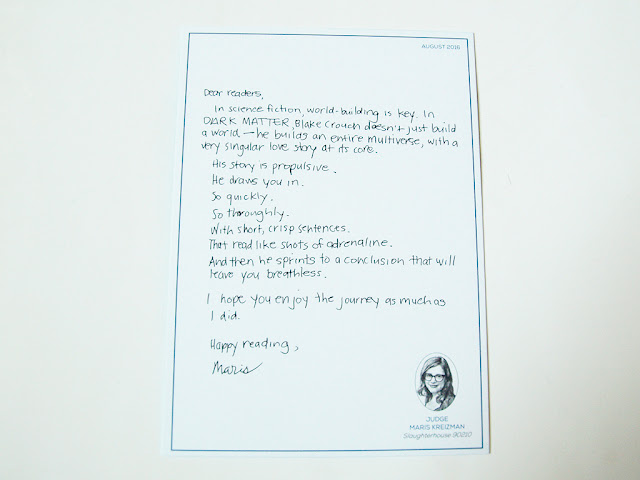 AUGUST 2016
Dear readers,
In science fiction, world-building is key. In
DARK MATTER, Blake Crouch doesn't just build
a world — he builds an entire multiverse, with a
very singular love story at its core.
His story is propulsive.
He draws you in.
So quickly.
So thoroughly.
With short, crisp sentences.
That read like shots of adrenaline.
And then he sprints to a conclusion that will
leave you breathless.
I hope you enjoy the journey as much as
I did.
Happy reading,
Maris
JUDGE
MARIS KREIZMAN
Slaughterhouse 90210